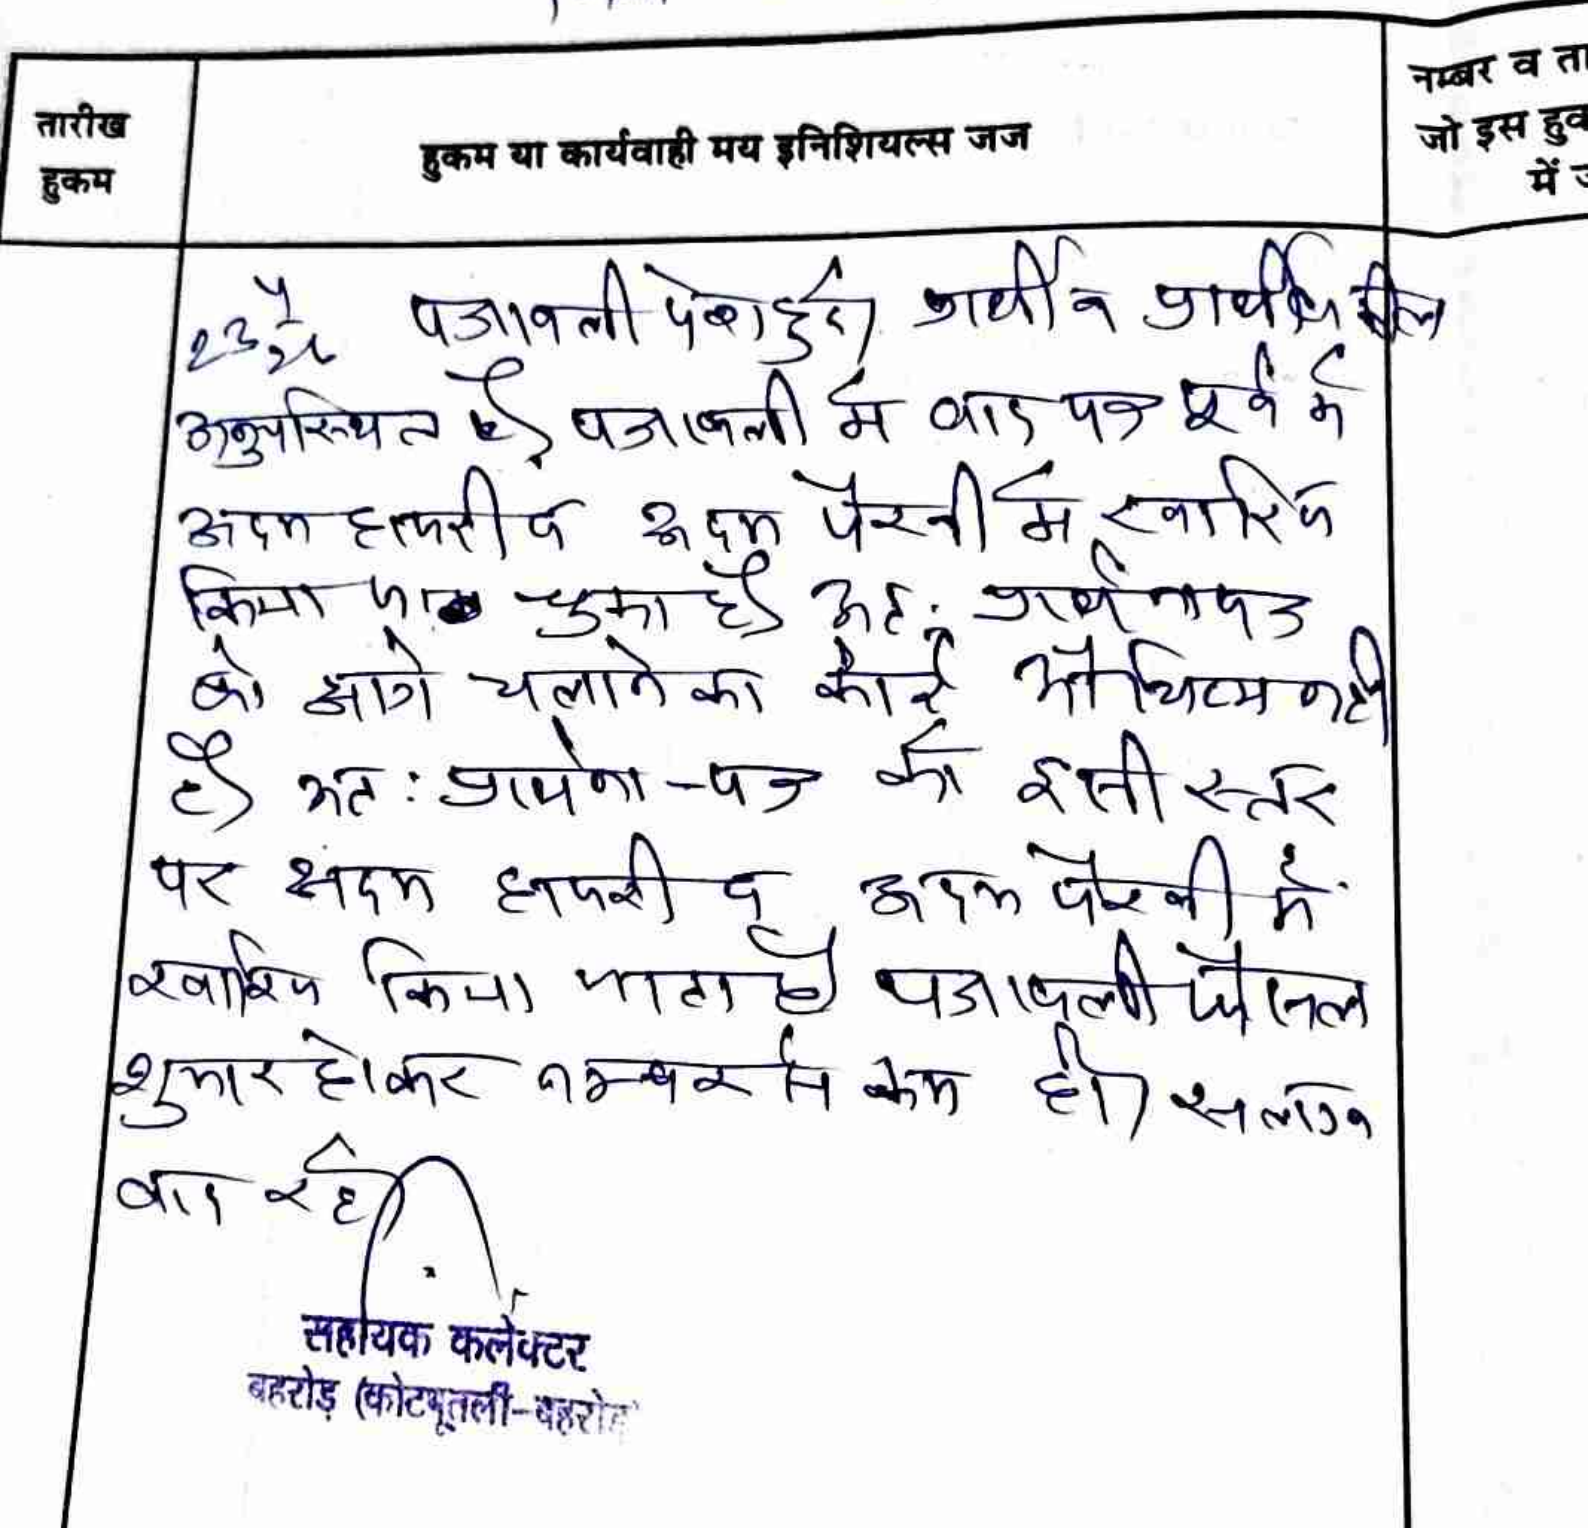 तारीख
हुकम
हुकम या कार्यवाही मय इनिशियल्स जज
नम्बर व ता
जो इस हुक
में ज
पत्रावली पेश हुई। प्रार्थी व प्रार्थी वकील
अनुपस्थित है। पत्रावली में वाद पत्र पूर्व में
अदम हाजरी व अदम पैरवी में खारिज
किया जा चुका है। अतः प्रार्थना पत्र
को आगे चलाने का कोई औचित्य नही
है। अतः प्रार्थना-पत्र को इसी स्तर
पर अदम हाजरी व अदम पैरवी में
खारिज किया जाता है पत्रावली फैसल
शुमार होकर नम्बर से कम हो। सलंग्न
वाद रहे।
सहायक कलेक्टर
बहरोड़ (कोटपूतली-बहरोड़